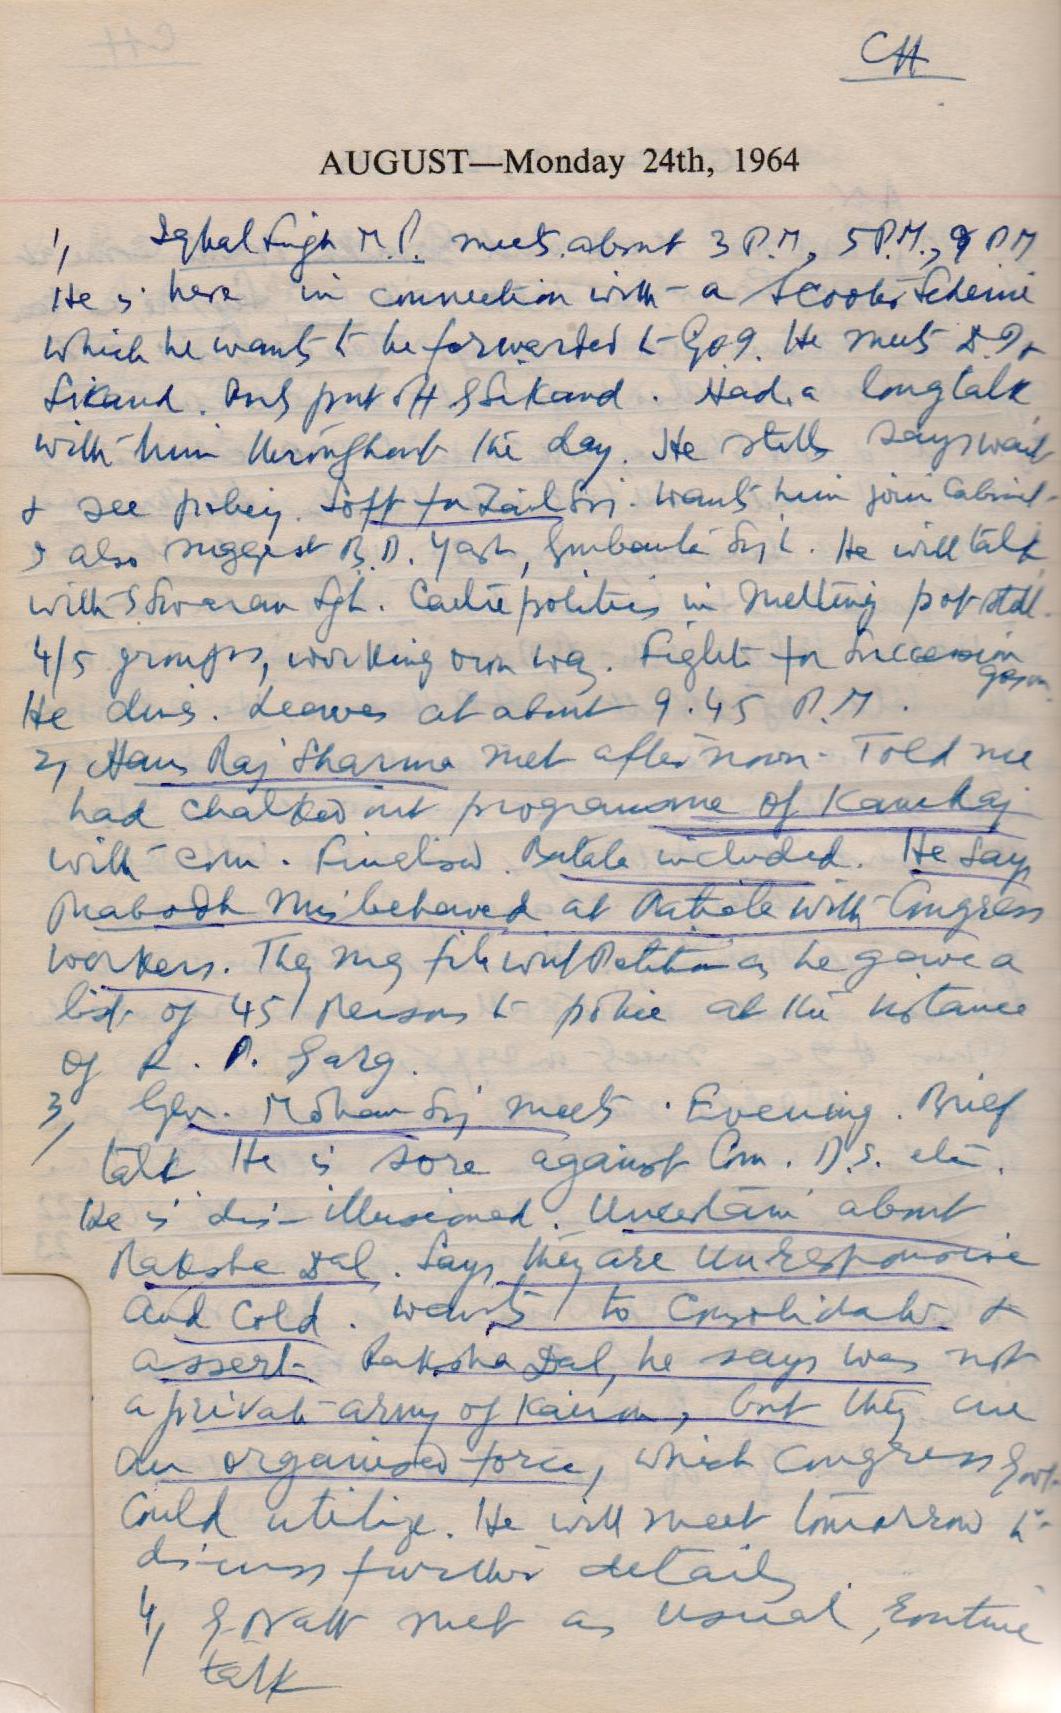 CH
AUGUST—Monday 24th, 1964
1, Iqbal Singh M.P. meets about 3 P.M., 5 P.M., 9 P.M
He is here in connection with a Scooter Scheme
which he wants to be forwarded to He meets
Sikand. put off Sikand. Had a long talk
with him throughout the day. He still says wait
& see policy. Soft for Zail Sij. wants him join Cabinet
I also suggest B.D. Yash, Gurbanta Sijh. He will talk
with S Swaran Sgh. politics in melting pot still.
4/5 groups, working own way. Fight for Succession goes on
He dines. Leaves at about 9.45 P.M.
2, Hans Raj Sharma met afternoon. Told me
had chalked out programme of Kamraj
with com. Finalised. Batala included. He says
Prabodh misbehaved at Patiala with Congress
workers. They may file writ Petition as he gave a
list of 45 Persons to police at the instance
of R. P. Garg.
3, Gen. Mohan Sij meets. Evening. Brief
talk He is sore against Com. D.S. etc.
He is dis-illusioned. Uncertain about
Raksha Dal. Says they are unresponsive
and cold. wants to consolidate &
assert. Raksha Dal, he says was not
a private army of Kairon, but they are
an organised force, which Congress Govt.
could utilize. He will meet tomorrow to
discuss further details
4, met as usual, routine
talk